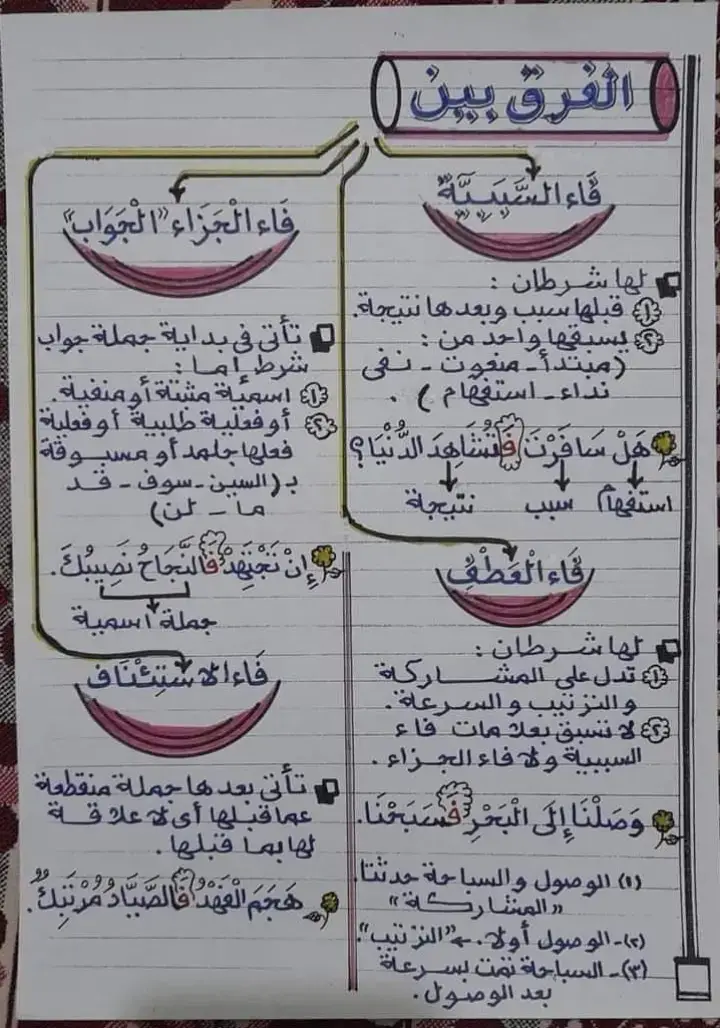 الفرق بين
فَاء السَّبَبِيَّة
لها شرطان :
١ قبلها سبب وبعدها نتيجة.
٢ يسبقها واحد من :
(مبتدأ - منعوت - نفى
نداء - استفهام ) .
هَلْ سَافَرْتَ فَتُشَاهِدَ الدُّنْيَا؟
استفهام سبب نتيجة
فَاء الْعَطْفِ
لها شرطان :
١ تدل على المشاركة
والترتيب والسرعة.
٢ لا تسبق بعلامات فاء
السببية ولا فاء الجزاء .
وَصَلْنَا إِلَى الْبَحْرِ فَسَبَحْنَا.
(١) الوصول والسباحة حدثتا
"المشاركة"
(٢)- الوصول أولا. ← "الترتيب"
(٣)- السباحة تمت بسرعة
بعد الوصول.
فَاء الْجَزَاء "الْجَوَاب"
تأتى فى بداية جملة جواب
شرط إما :
١ اسمية مثبتة أو منفية.
٢ أو فعلية طلبية أو فعلية
فعلها جامد أو مسبوقة
بـ (السين - سوف - قد
ما - لن)
إِنْ تَجْتَهِدْ فَالنَّجَاحُ نَصِيبُكَ.
جملة اسمية
فَاء الاسْتِئْنَاف
تأتى بعدها جملة منقطعة
عما قبلها أى لا علاقة
لها بما قبلها.
هَجَمَ الْفَهْدُ فَالصَّيَّادُ مُرْتَبِكٌ.